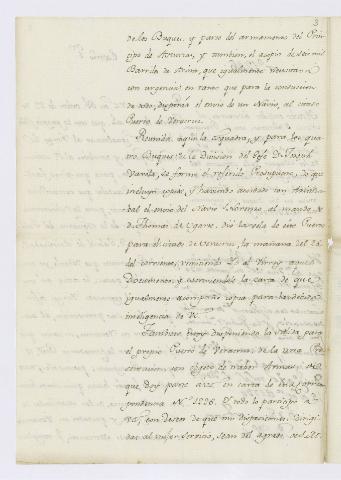 3
de los Buques, y parte del armamento del Prin-
cipe de Asturias, y tambien, el acopio de seis mil
Barrils de Arina, que igualmente
con urgencia; en tanto que para la
de todo, disponia el envio de un Navio, al citado
Puerto de Veracruz.
Reunida segun la Esquadra, y para los qua-
tro Buques de la Division del Gefe Dn.
Varila, se formó el referido Presupuesto, de que
incluyo copia; y haviendo acordado con
el envio del Navio Sn. Lorenzo, al mando de
Dn. Thomas de Ugarte, dió la vela de este Puerto
para el citado de Veracruz, la mañana del 26
del corriente, remitiendo Yo al Virrey aquel
Documento, y escriviendole la carta de que
igualmente acompaño copia para la devida
inteligencia de V.E.
Tambien tengo disponiendo la salida para
el propio Puerto de Veracruz, de la Urca
con objeto de traher Arinas, y de
que doy parte a V.E. en carta de esta
pondencia No. 1226. Y todo lo participo a
V.E., con deseo de que mis disposiciones dirigi-
das al mejor servicio, sean del agrado de S.M.